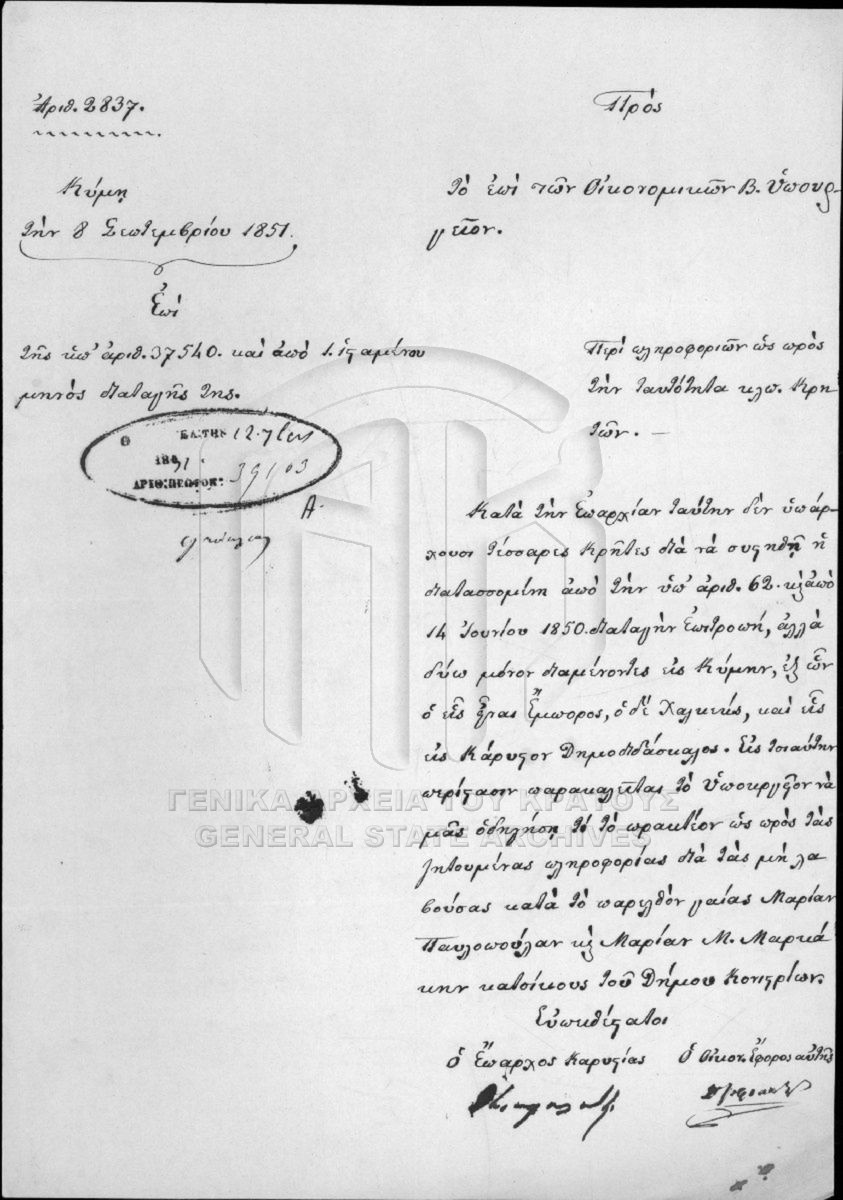 Ἀριθ. 2837.
Κύμη
τὴν 8 Σεπτεμβρίου 1851.
Ἐπὶ
τῆς ὑπ' ἀριθ. 37540. καὶ ἀπὸ 1. ἱσταμένου
μηνὸς διαταγῆς της.
ΕΛ: ΤΗΝ 12.7βρίου
18 51
ΑΡΙΘ: ΠΡΩΤΟΚ: 39103
Α.
Πρὸς
Τὸ ἐπὶ τῶν Οἰκονομικῶν Β. Ὑπουρ-
γεῖον.
Περὶ πληροφοριῶν ὡς πρὸς
τὴν ταυτότητα κλπ. Κρη
τῶν. —
Κατὰ τὴν Ἐπαρχίαν ταύτην δὲν ὑπάρ-
χουσι τέσσαρες Κρῆτες διὰ νὰ συστηθῇ ἡ
διατασσομένη ἀπὸ τὴν ὑπ' ἀριθ. 62. κ ἀπὸ
14 Ἰουνίου 1850. διαταγὴν Ἐπιτροπή, ἀλλὰ
δύω μόνον διαμένοντες εἰς Κύμην, ἐξ ὧν
ὁ εἷς Ἔμπορος, ὁ δὲ Χαλκεύς, καὶ εἷς
εἰς Κάρυστον Δημοδιδάσκαλος. Εἰς τοιαύτην
περίστασιν παρακαλεῖται τὸ Ὑπουργεῖον νὰ
μᾶς ὁδηγήσῃ τί τὸ πρακτέον ὡς πρὸς τὰς
ζητουμένας πληροφορίας διὰ τὰς μὴ λα
βούσας κατὰ τὸ παρελθὸν γαίας Μαρίαν
Παυλοπούλαν κ Μαρίαν Μ. Μαρκά
κην κατοίκους τοῦ Δήμου Κονιστρίων.
Εὐπειθέστατοι
Ὁ Ἔπαρχος Καρυστίας Ὁ Οἰκον. Ἔφορος αὐτῆς
ΓΕΝΙΚΑ ΑΡΧΕΙΑ ΤΟΥ ΚΡΑΤΟΥΣ
GENERAL STATE ARCHIVES